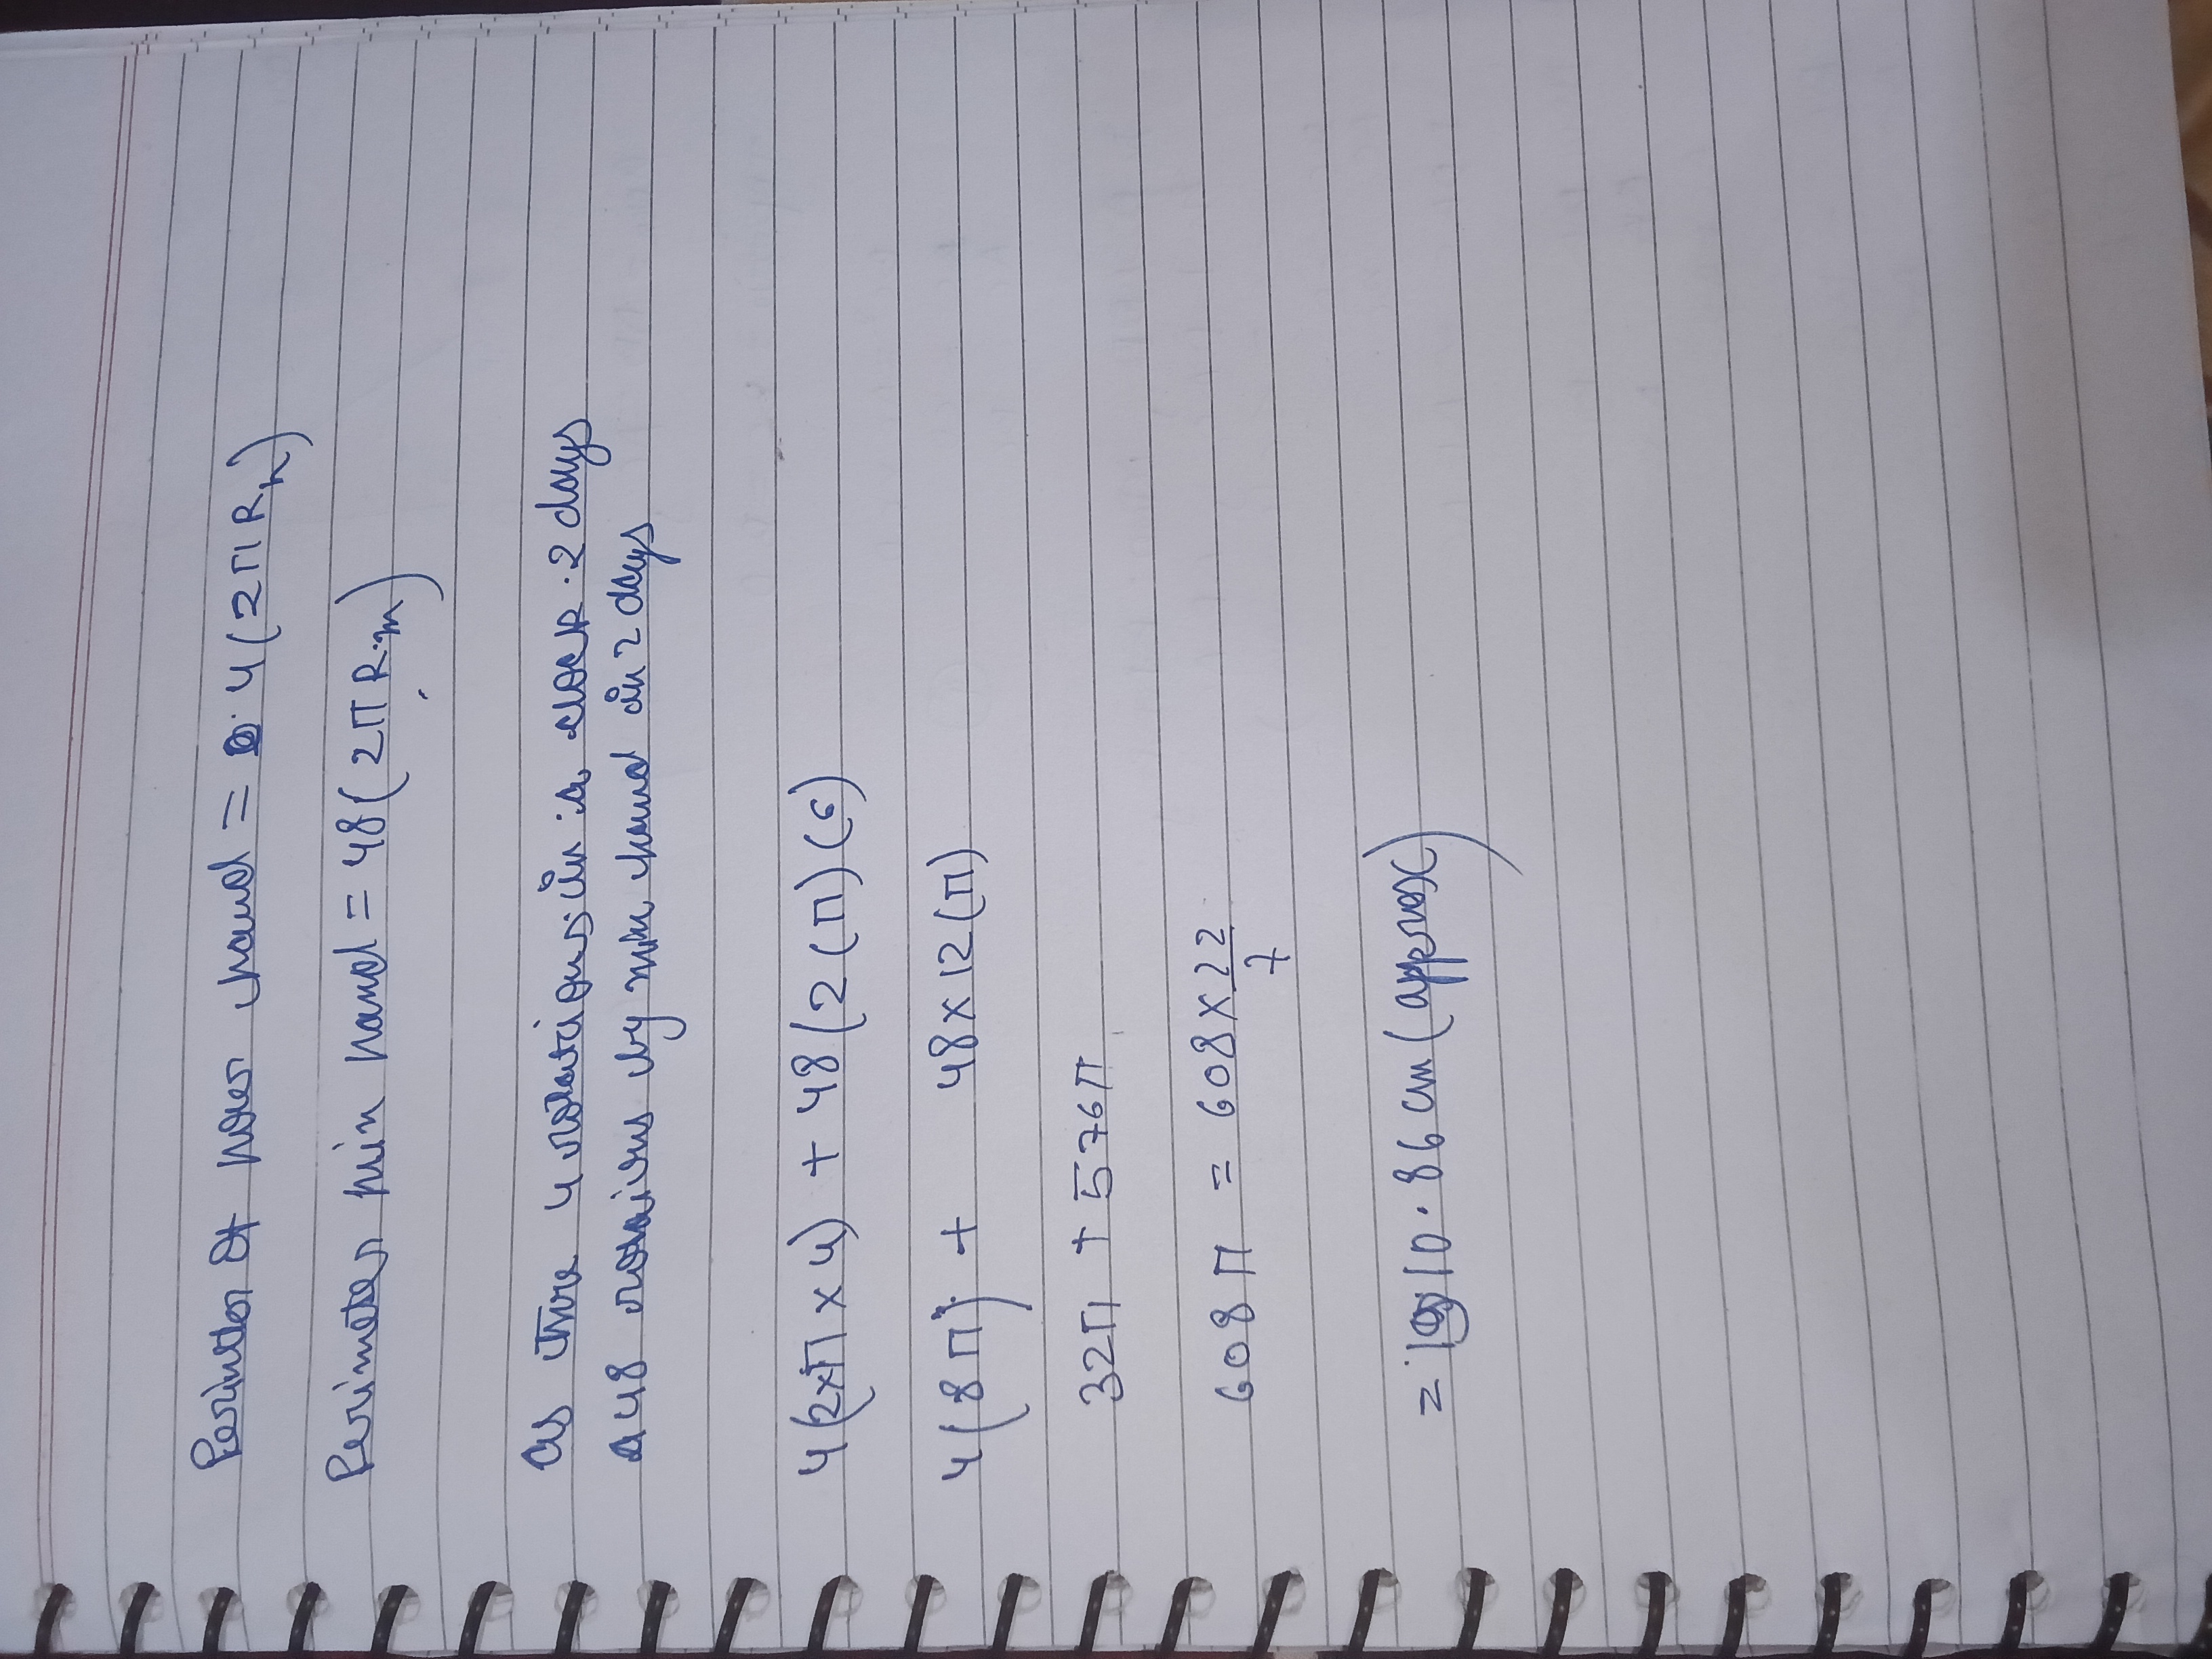 Perimter of hour hand = 4(2πR h)
Perimeter min hand = 48(2πR m)
as there 4 rotations in a clock 2 days
a 48 rotations by min hand in 2 days
4(2xπx4) + 48(2(π)(6)
4(8π) + 48x12(π)
32π + 576π
608π = 608x22/7
= 1910.86 cm (approx)